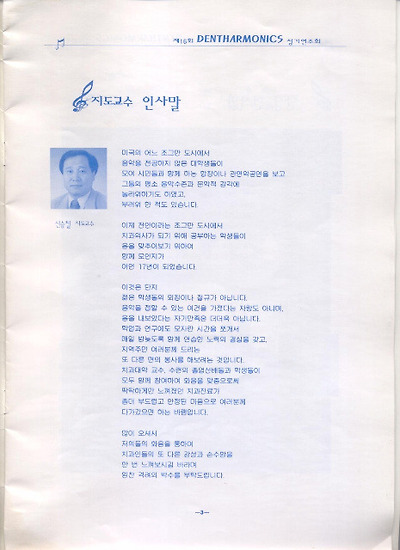 제16회 DENTHARMONICS 정기연주회
지도교수 인사말
미국의 어느 조그만 도시에서
음악을 전공하지 않은 대학생들이
모여 시민들과 함께 하는 합창이나 관현악공연을 보고
그들의 평소 음악수준과 문학적 감각에
놀라워하기도 하였고,
부러워 한 적도 있습니다.
지도교수
이제 천안이라는 조그만 도시에서
치과의사가 되기 위해 공부하는 학생들이
음을 맞추어보기 위하여
함께 모인지가
어언 17년이 되었습니다.
이것은 단지
젊은 학생들의 외침이나 절규가 아닙니다.
음악을 접할 수 있는 여건을 가졌다는 자랑도 아니며,
음을 내보았다는 자기만족은 더더욱 아닙니다.
학업과 연구에도 모자란 시간을 쪼개서
매일 밤늦도록 함께 연습한 노력의 결실을 갖고,
지역주민 여러분께 드리는
또 다른 면의 봉사를 해보려는 것입니다.
치과대학 교수, 수련의 졸업선배들과 학생들이
모두 함께 참여하여 화음을 맞춤으로써
딱딱하게만 느껴졌던 치과진료가
좀더 부드럽고 안정된 마음으로 여러분께
다가갔으면 하는 바램입니다.
많이 오셔서
저희들의 화음을 통하여
치과인들의 또 다른 감성과 순수함을
한 번 느껴보시길 바라며
힘찬 격려의 박수를 부탁드립니다.
—3—